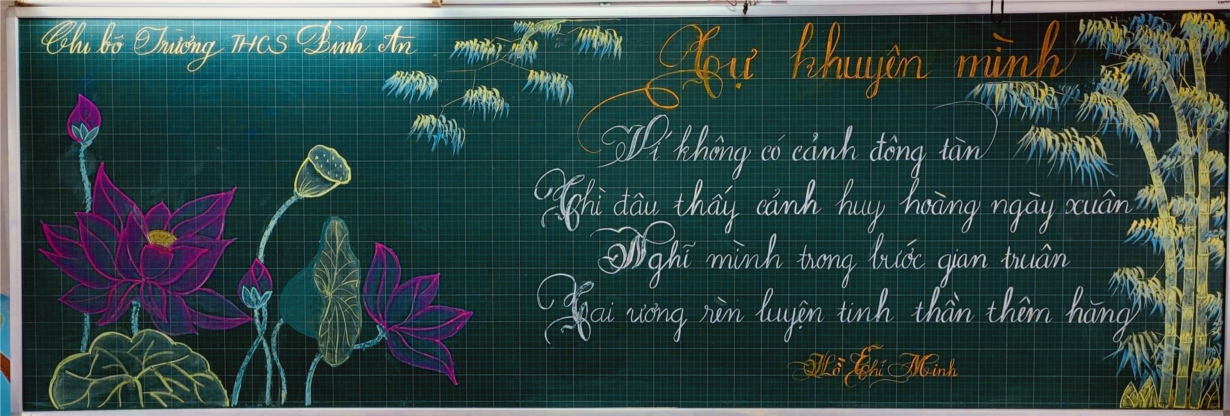 Chi bộ Trường THCS Đình An
Tự khuyên mình
Ví không có cảnh đông tàn
Thì đâu thấy cảnh huy hoàng ngày xuân
Nghĩ mình trong bước gian truân
Tai ương rèn luyện tinh thần thêm hăng
Hồ Chí Minh